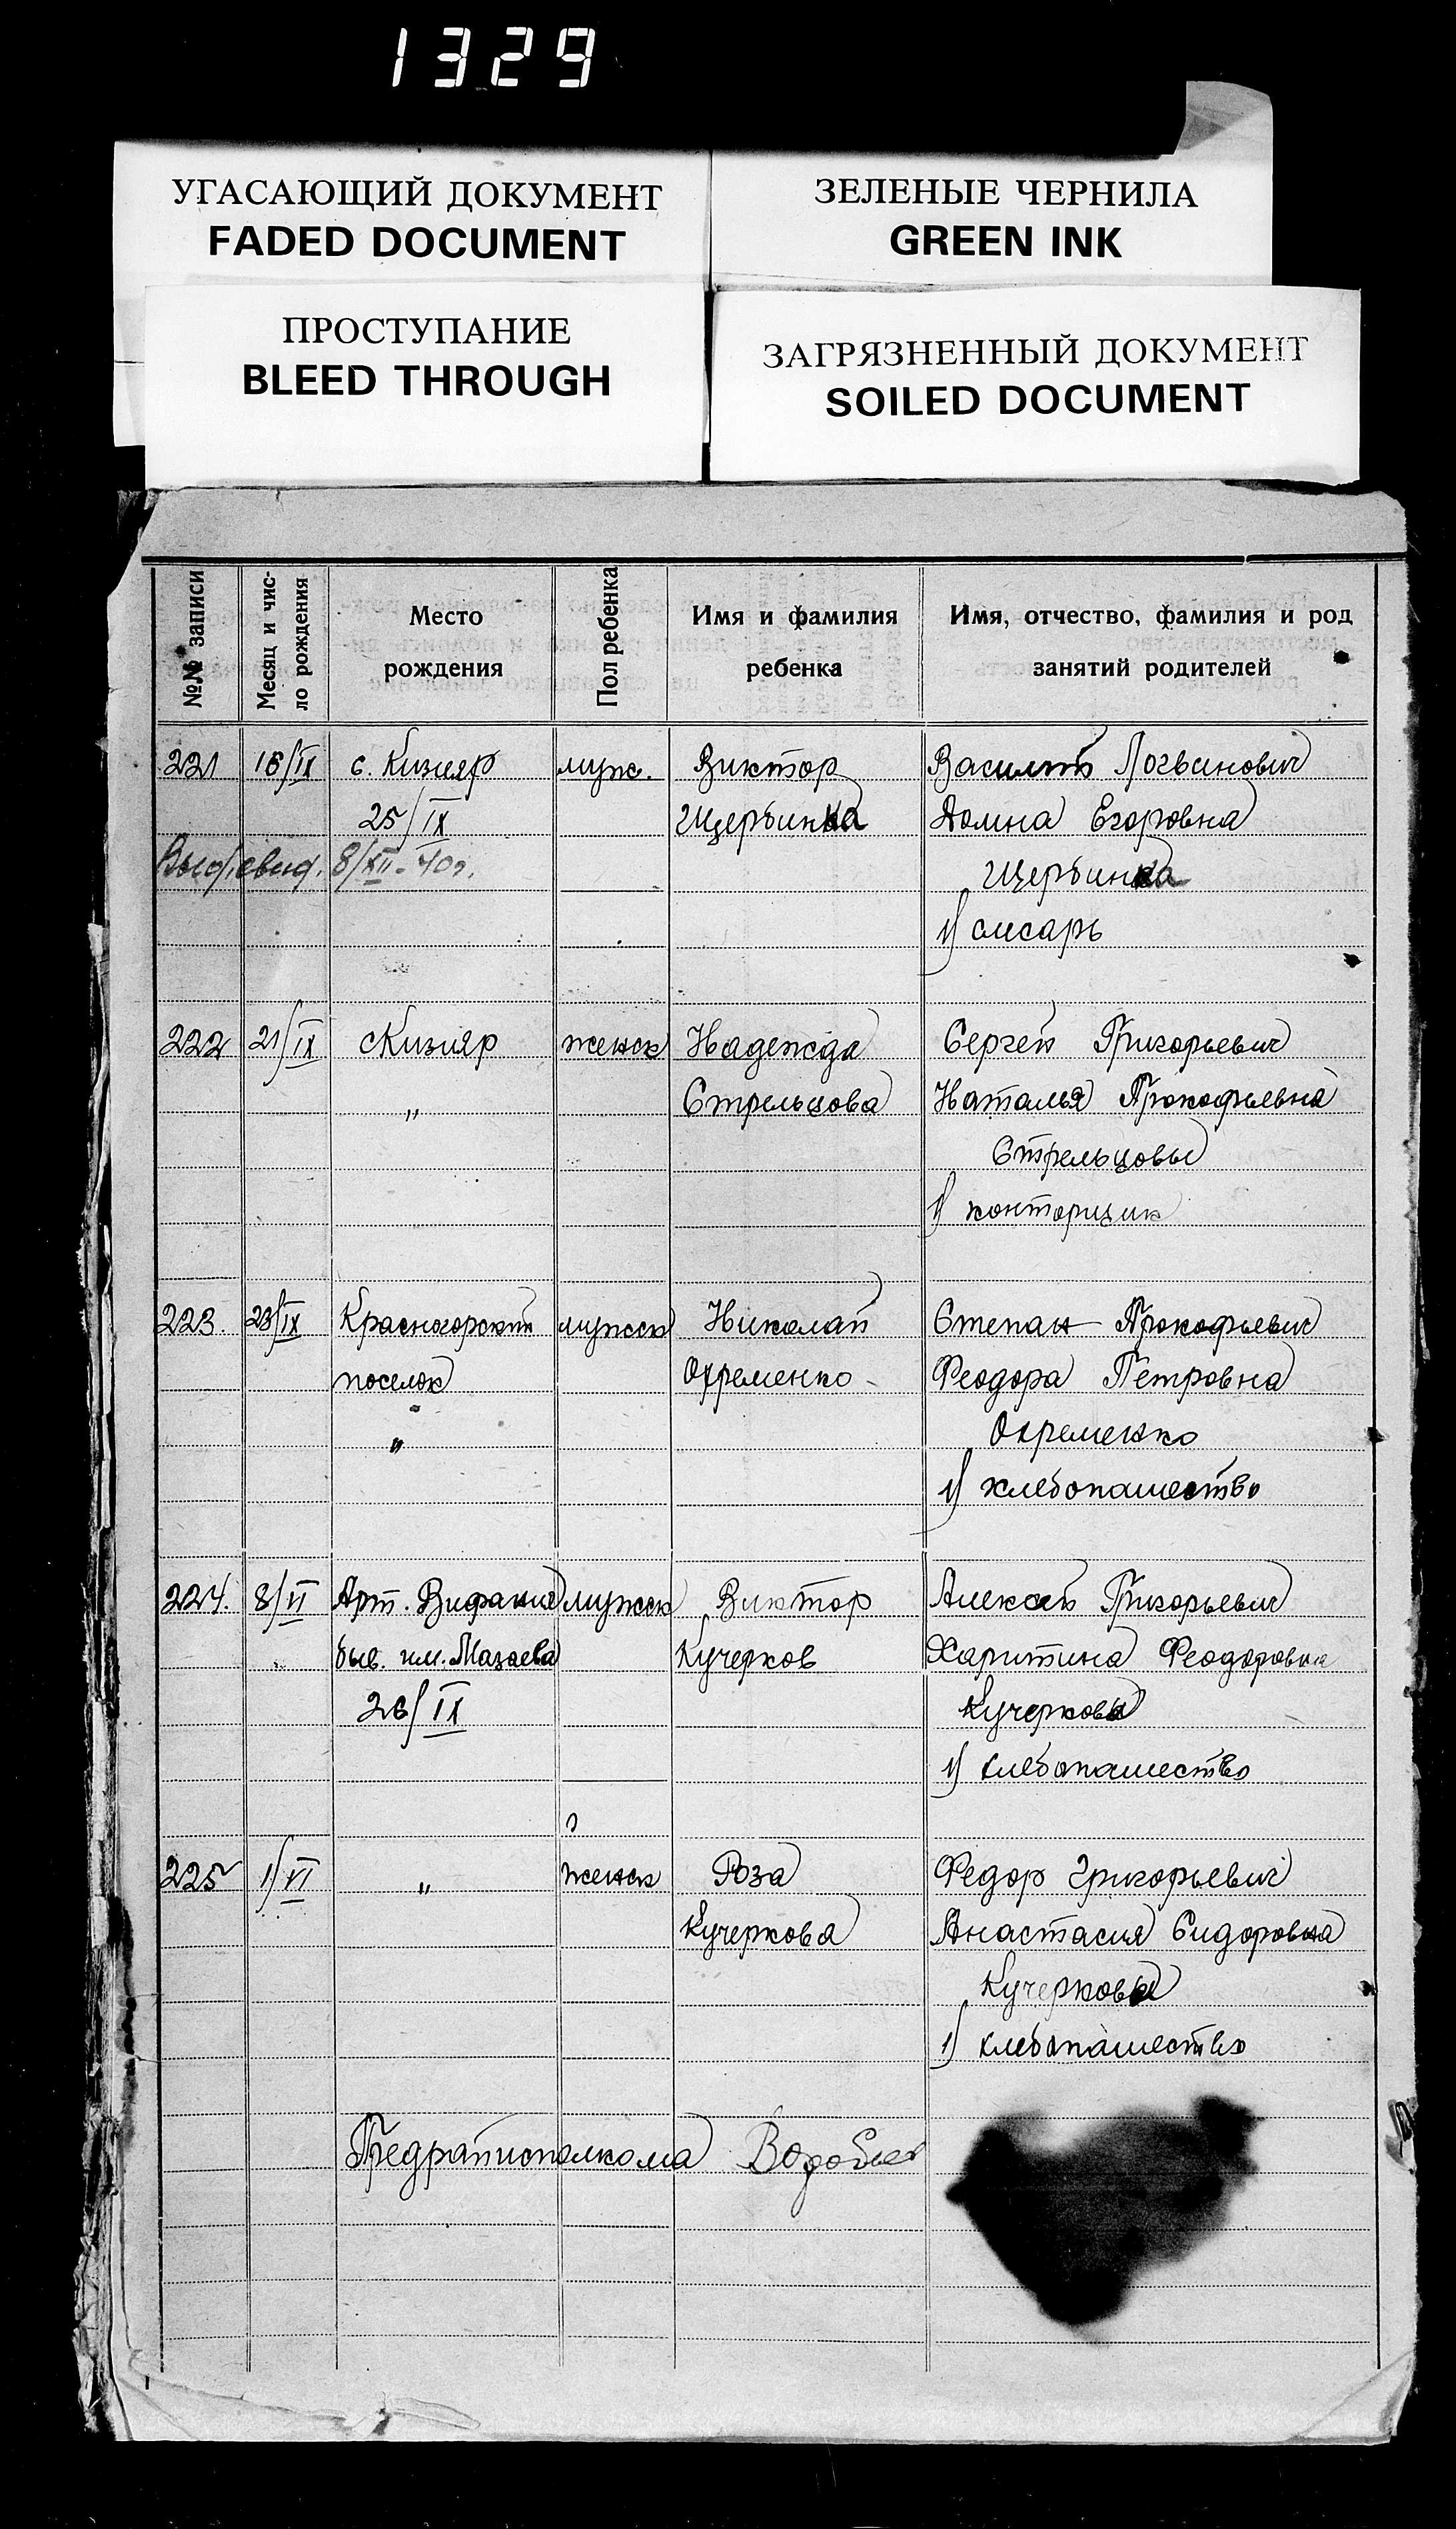 1329
УГАСАЮЩИЙ ДОКУМЕНТ
FADED DOCUMENT
ЗЕЛЕНЫЕ ЧЕРНИЛА
GREEN INK
ПРОСТУПАНИЕ
BLEED THROUGH
ЗАГРЯЗНЕННЫЙ ДОКУМЕНТ
SOILED DOCUMENT
№№ записи
Месяц и чис-
ло рождения
Место
рождения
Пол ребенка
Имя и фамилия
ребенка
Имя, отчество, фамилия и род
занятий родителей
221 16/IX с. Кизияр мужс. Виктор Василий Логвинович
25/IX Щербинка Домна Егоровна
Выд. свид. 8/XII-40г. Щербинка
1) слесарь
222 21/IX с Кизияр женск Надежда Сергей Григорьевич
" Стрельцова Наталья Прокофьевна
Стрельцовы
1) конторщик
223. 23/IX Красногорский мужск Николай Степан Прокофьевич
поселок Охременко Феодора Петровна
" Охременко
1) хлебопашество
224. 8/VI Арт. Вифания мужск Виктор Алексей Григорьевич
быв. им. Мазаева Кучерков Харитина Феодоровна
26/IX Кучерковы
1) хлебопашество
225 1/VI " женск Роза Федор Григорьевич
Кучеркова Анастасия Сидоровна
Кучерковы
1) хлебопашество